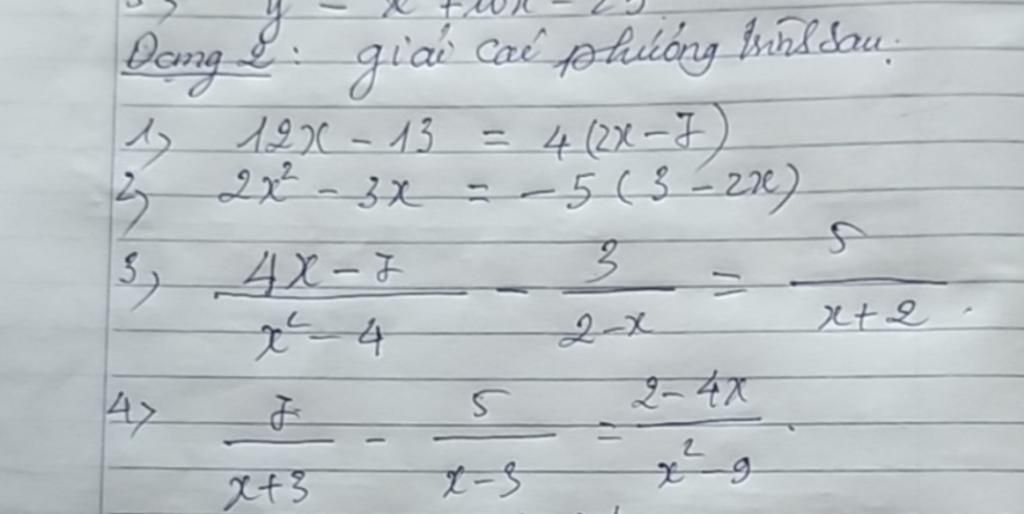 y = x + 10x - 25
Dạng 2: giải các phương trình sau:
1) 12x - 13 = 4(2x - 7)
2) 2x² - 3x = -5(3 - 2x)
3) (4x - 7)/(x² - 4) - 3/(2 - x) = 5/(x + 2).
4) 7/(x + 3) - 5/(x - 3) = (2 - 4x)/(x² - 9).